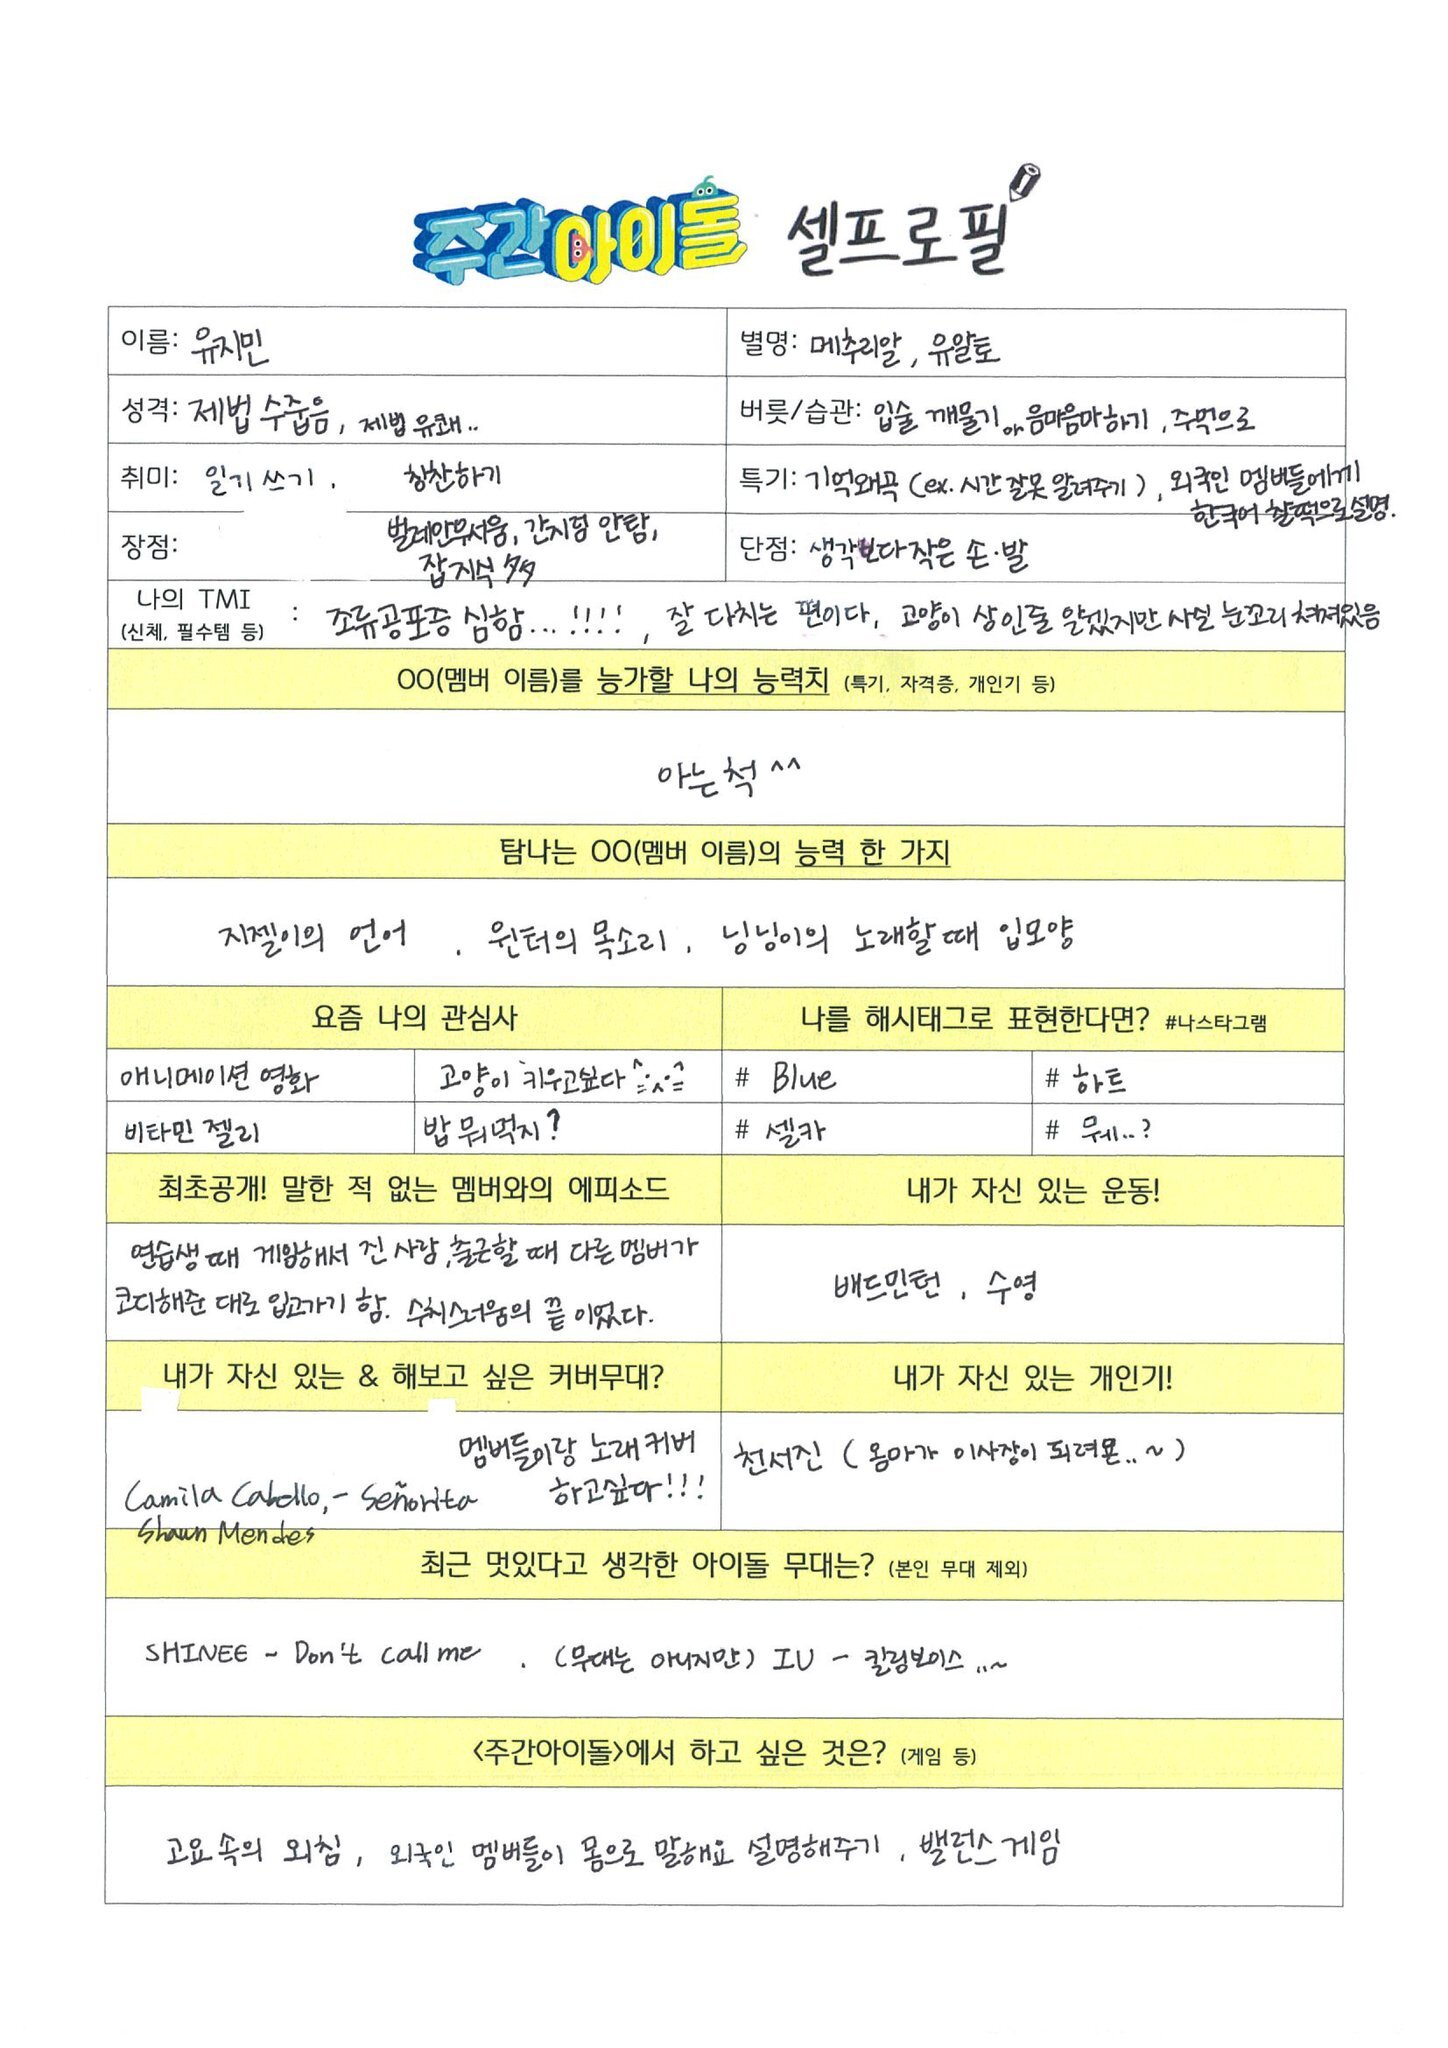 주간아이돌 셀프로필
이름: 유지민
별명: 메추리알, 유알토
성격: 제법 수줍음, 제법 유쾌..
버릇/습관: 입술 깨물기 or 음마음마하기, 주먹으로
취미: 일기 쓰기, 칭찬하기
특기: 기억왜곡 (ex. 시간 잘못 알려주기), 외국인 멤버들에게
한국어 찰떡으로 설명.
장점: 벌레안무서움, 간지럼 안탐,
잡지식 多
단점: 생각보다 작은 손·발
나의 TMI
(신체, 필수템 등) : 조류공포증 심함...!!!!, 잘 다치는 편이다, 고양이 상인줄 알겠지만 사실 눈꼬리 쳐져있음
OO(멤버 이름)를 능가할 나의 능력치 (특기, 자격증, 개인기 등)
아는척 ^^
탐나는 OO(멤버 이름)의 능력 한 가지
지젤이의 언어, 윈터의 목소리, 닝닝이의 노래할 때 입모양
요즘 나의 관심사
나를 해시태그로 표현한다면? #나스타그램
애니메이션 영화
고양이 키우고싶다
# Blue
# 하트
비타민 젤리
밥 뭐먹지?
# 셀카
# 뭐..?
최초공개! 말한 적 없는 멤버와의 에피소드
내가 자신 있는 운동!
연습생 때 게임해서 진 사람, 출근할 때 다른 멤버가
코디해준 대로 입고가기 함. 수치스러움의 끝 이었다.
배드민턴, 수영
내가 자신 있는 & 해보고 싶은 커버무대?
내가 자신 있는 개인기!
멤버들이랑 노래 커버
하고싶다!!!
Camila Cabello, - Señorita
Shawn Mendes
천서진 (옴마가 이사장이 되려묜..~)
최근 멋있다고 생각한 아이돌 무대는? (본인 무대 제외)
SHINEE ~ Don't call me, (무대는 아니지만) IU - 킬링보이스..~
<주간아이돌>에서 하고 싶은 것은? (게임 등)
고요 속의 외침, 외국인 멤버들이 몸으로 말해요 설명해주기, 밸런스게임